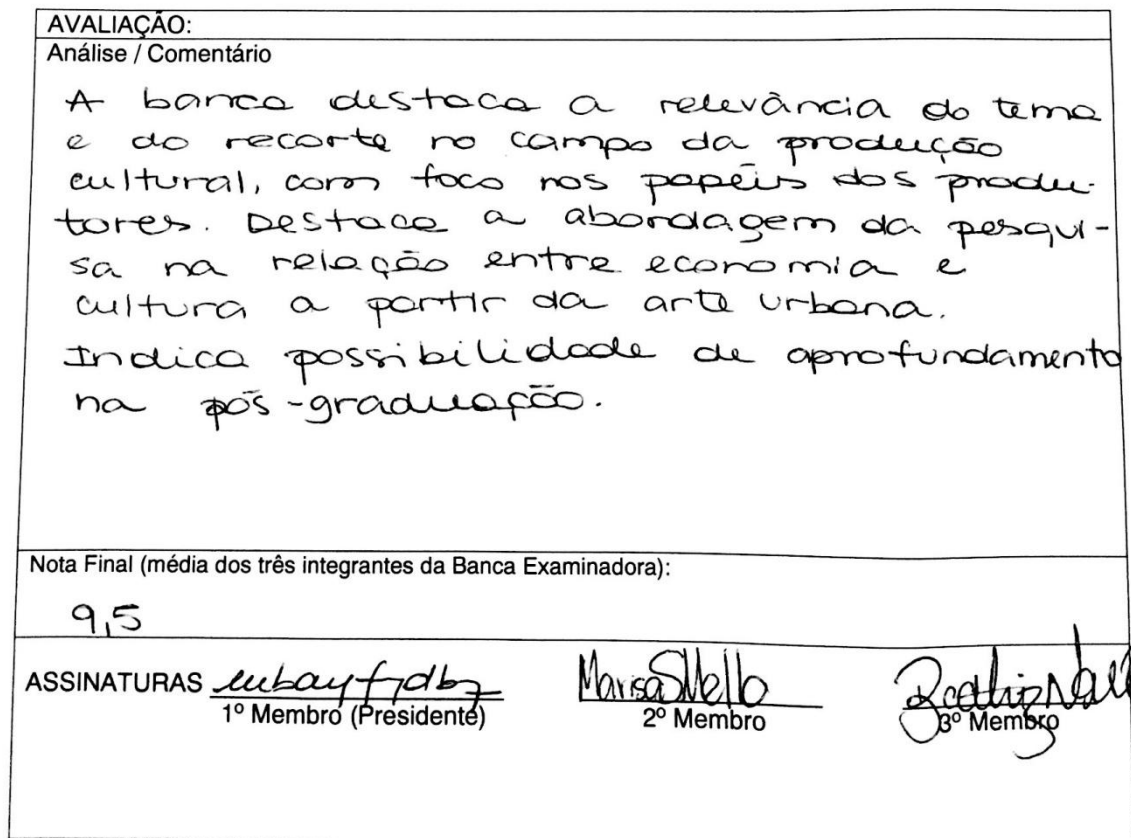 AVALIAÇÃO:
Análise / Comentário
A banca destaca a relevância do tema
e do recorte no campo da produção
cultural, com foco nos papéis dos produ-
tores. Destaca a abordagem da pesqui-
sa na relação entre economia e
cultura a partir da arte urbana.
Indica possibilidade de aprofundamento
na pós-graduação.
Nota Final (média dos três integrantes da Banca Examinadora):
9,5
ASSINATURAS Marisa S Mello Beatriz
1º Membro (Presidente) 2º Membro 3º Membro